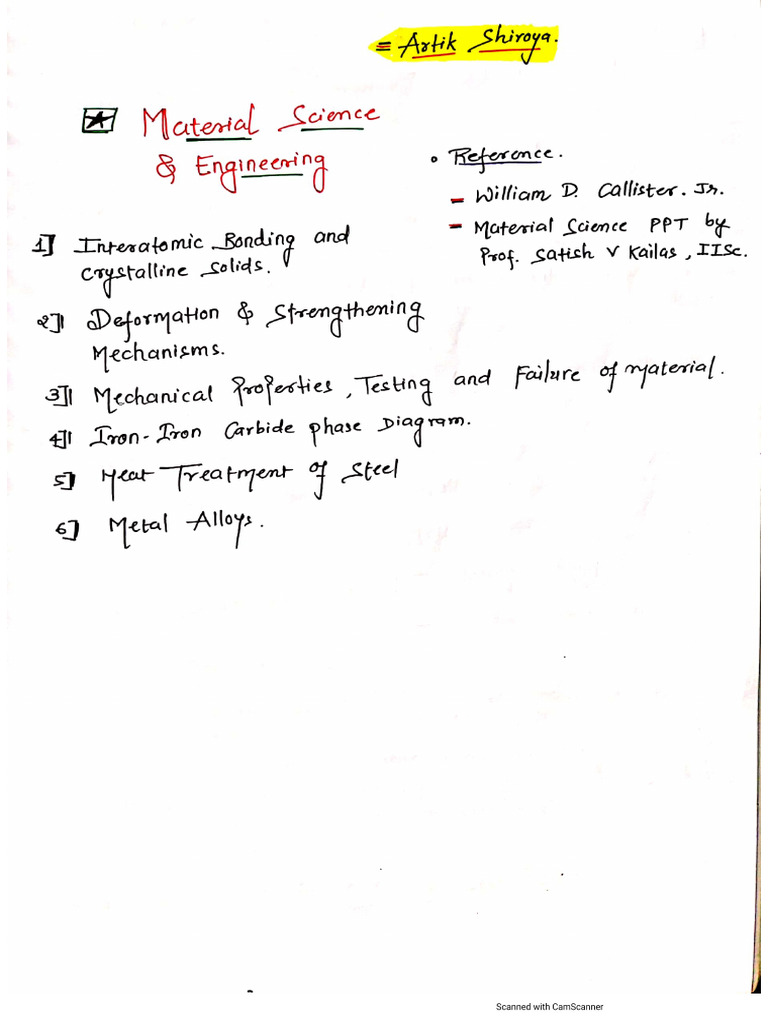 = Artik Shiroya.
Material Science
& Engineering
• Reference.
- William D. Callister. Jr.
- Material Science PPT by
Prof. Satish V Kailas, IISc.
1] Interatomic Bonding and
Crystalline Solids.
2] Deformation & Strengthening
Mechanisms.
3] Mechanical Properties, Testing and Failure of material.
4] Iron-Iron Carbide phase Diagram.
5] Heat Treatment of Steel
6] Metal Alloys.
Scanned with CamScanner